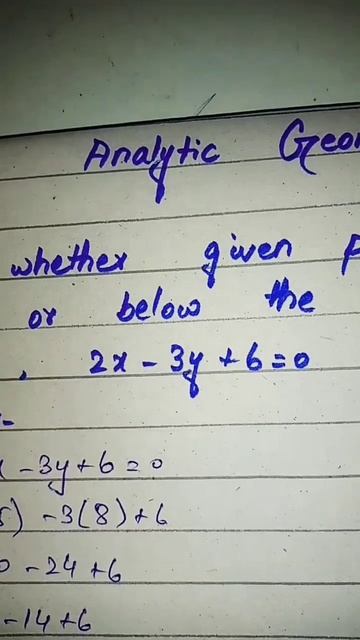 Analytic Geo
whether given p
or below the
, 2x - 3y + 6 = 0
x - 3y + 6 = 0
5) - 3(8) + 6
0 - 24 + 6
- 14 + 6